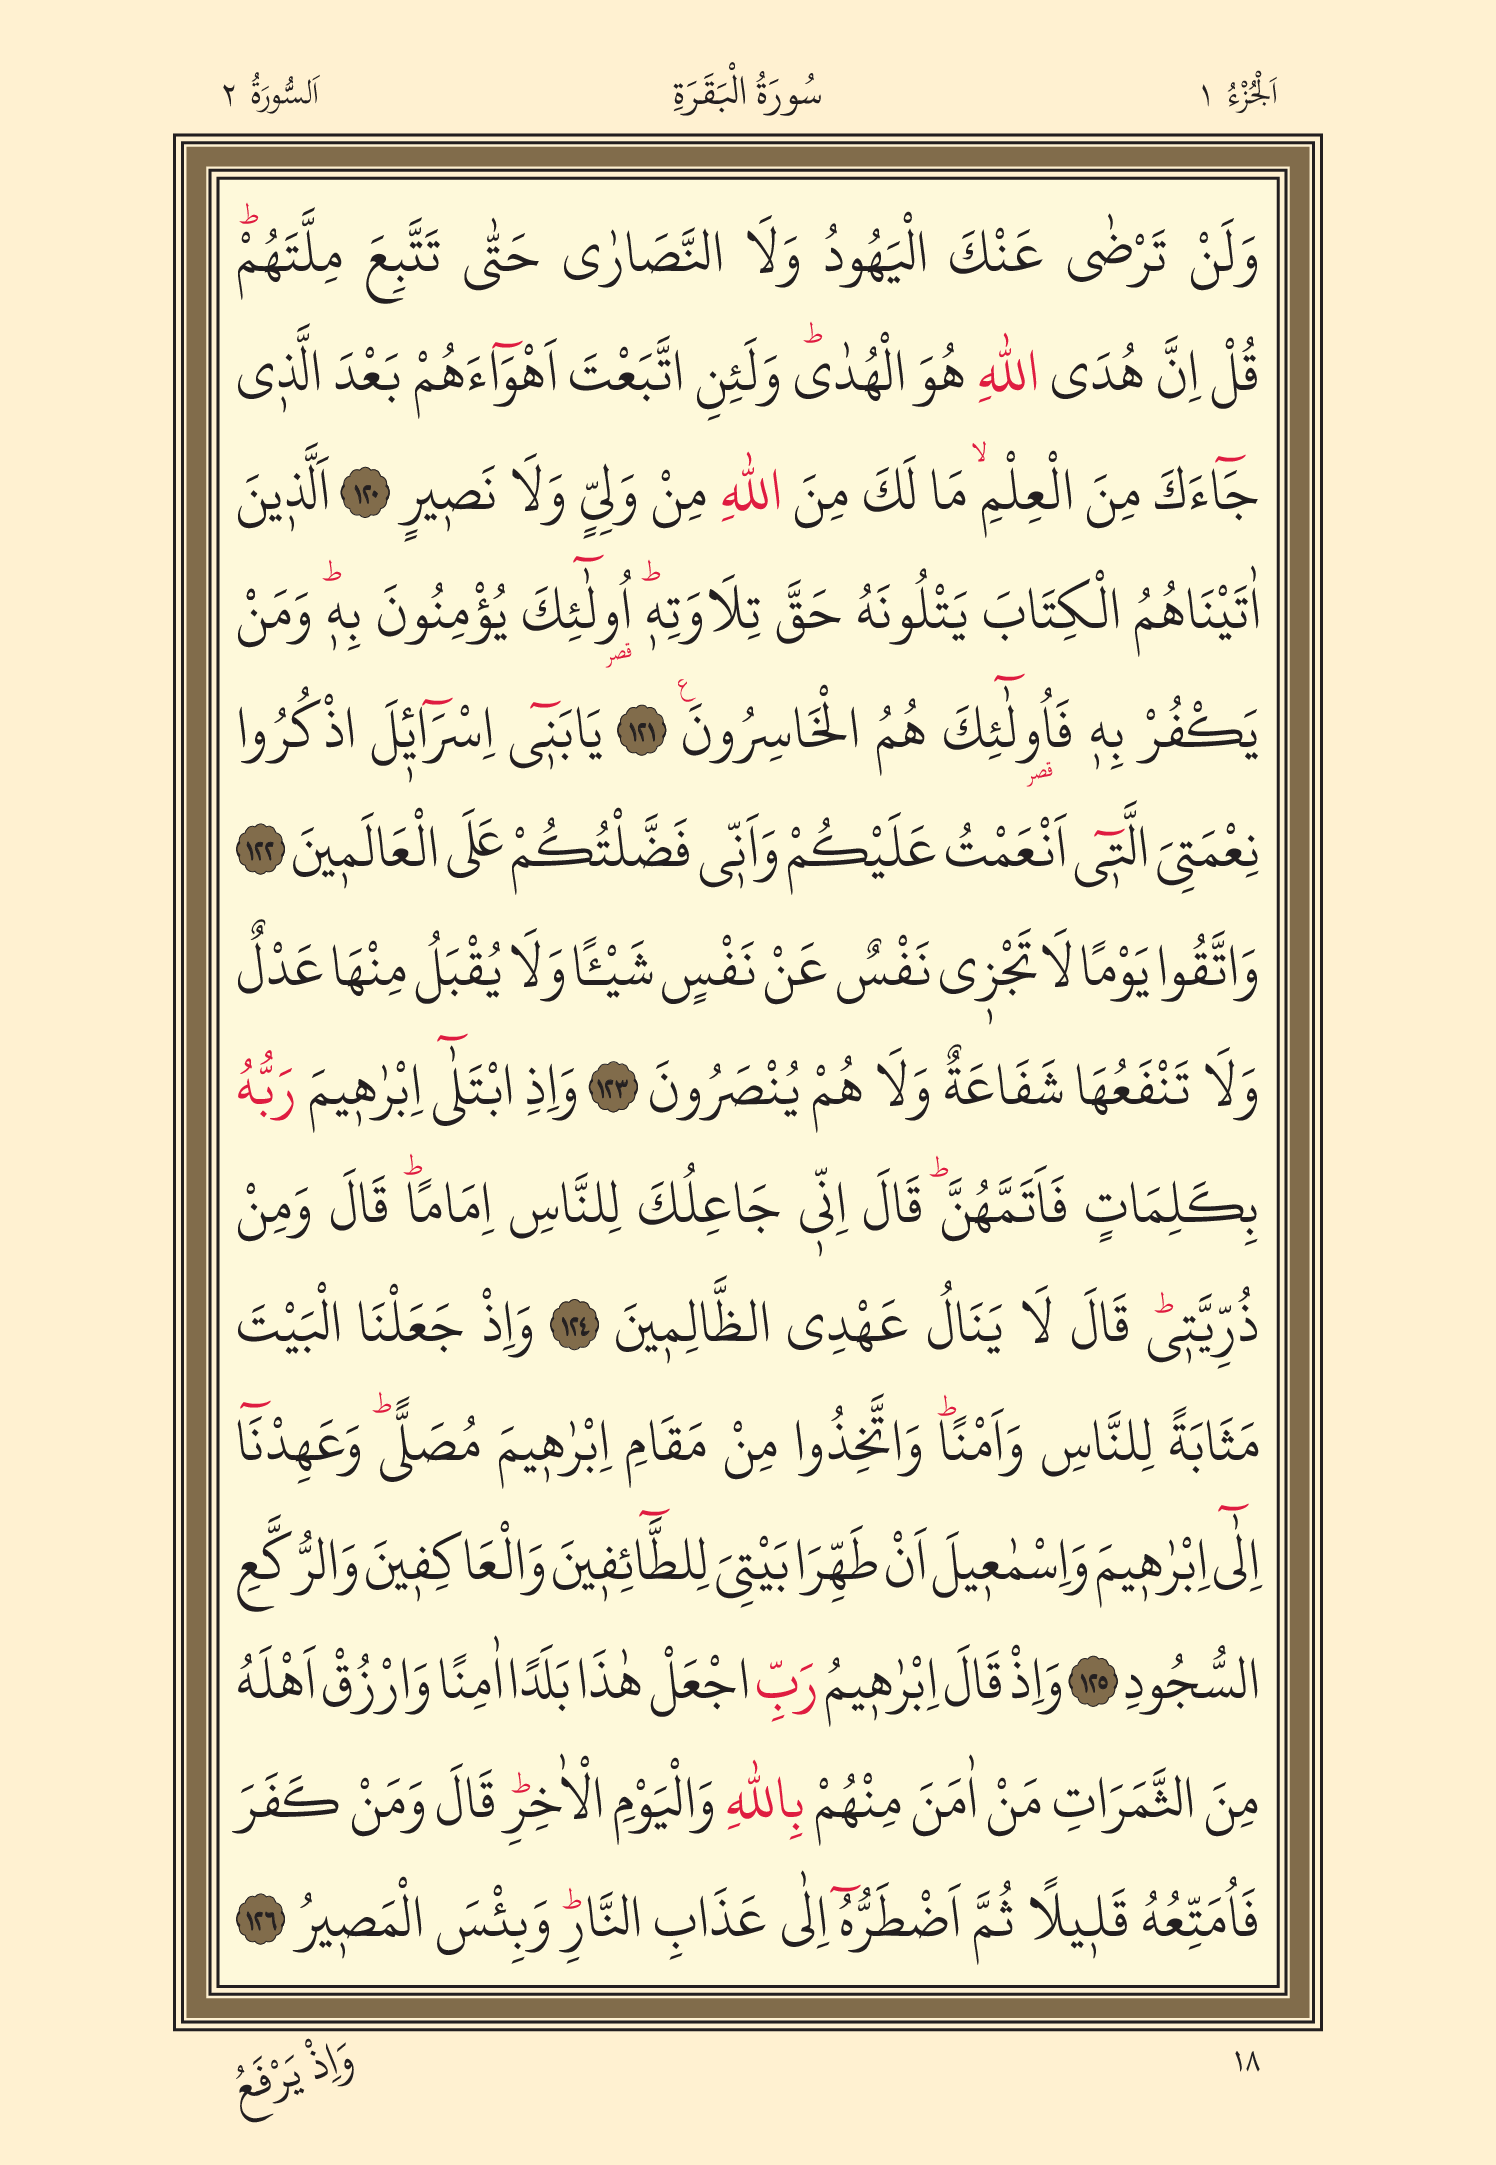 اَلْجُزْءُ ١ سُورَةُ الْبَقَرَةِ اَلسُّورَةُ ٢
وَلَنْ تَرْضٰى عَنْكَ الْيَهُودُ وَلَا النَّصَارٰى حَتّٰى تَتَّبِعَ مِلَّتَهُمْۜ
قُلْ اِنَّ هُدَى اللّٰهِ هُوَ الْهُدٰىۜ وَلَئِنِ اتَّبَعْتَ اَهْوَٓاءَهُمْ بَعْدَ الَّذ۪ى
جَٓاءَكَ مِنَ الْعِلْمِۙ مَا لَكَ مِنَ اللّٰهِ مِنْ وَلِىٍّ وَلَا نَص۪يرٍ ﴿١٢٠﴾ اَلَّذ۪ينَ
اٰتَيْنَاهُمُ الْكِتَابَ يَتْلُونَهُ حَقَّ تِلَاوَتِه۪ۜ اُو۬لٰٓئِكَ يُؤْمِنُونَ بِه۪ۜ وَمَنْ
قصر
يَكْفُرْ بِه۪ فَاُو۬لٰٓئِكَ هُمُ الْخَاسِرُونَ۟ ﴿١٢١﴾ يَابَن۪ٓى اِسْرَٓائ۪لَ اذْكُرُوا
قصر
نِعْمَتِىَ الَّت۪ٓى اَنْعَمْتُ عَلَيْكُمْ وَاَنّ۪ى فَضَّلْتُكُمْ عَلَى الْعَالَم۪ينَ ﴿١٢٢﴾
وَاتَّقُوا يَوْمًا لَا تَجْز۪ى نَفْسٌ عَنْ نَفْسٍ شَيْـًٔا وَلَا يُقْبَلُ مِنْهَا عَدْلٌ
وَلَا تَنْفَعُهَا شَفَاعَةٌ وَلَا هُمْ يُنْصَرُونَ ﴿١٢٣﴾ وَاِذِ ابْتَلٰٓى اِبْرٰه۪يمَ رَبُّهُ
بِكَلِمَاتٍ فَاَتَمَّهُنَّۜ قَالَ اِنّ۪ى جَاعِلُكَ لِلنَّاسِ اِمَامًاۜ قَالَ وَمِنْ
ذُرِّيَّت۪ىۜ قَالَ لَا يَنَالُ عَهْدِى الظَّالِم۪ينَ ﴿١٢٤﴾ وَاِذْ جَعَلْنَا الْبَيْتَ
مَثَابَةً لِلنَّاسِ وَاَمْنًاۜ وَاتَّخِذُوا مِنْ مَقَامِ اِبْرٰه۪يمَ مُصَلًّىۜ وَعَهِدْنَٓا
اِلٰٓى اِبْرٰه۪يمَ وَاِسْمٰع۪يلَ اَنْ طَهِّرَا بَيْتِىَ لِلطَّٓائِف۪ينَ وَالْعَاكِف۪ينَ وَالرُّكَّعِ
السُّجُودِ ﴿١٢٥﴾ وَاِذْ قَالَ اِبْرٰه۪يمُ رَبِّ اجْعَلْ هٰذَا بَلَدًا اٰمِنًا وَارْزُقْ اَهْلَهُ
مِنَ الثَّمَرَاتِ مَنْ اٰمَنَ مِنْهُمْ بِاللّٰهِ وَالْيَوْمِ الْاٰخِرِۜ قَالَ وَمَنْ كَفَرَ
فَاُمَتِّعُهُ قَل۪يلًا ثُمَّ اَضْطَرُّهُٓ اِلٰى عَذَابِ النَّارِۜ وَبِئْسَ الْمَص۪يرُ ﴿١٢٦﴾
١٨ وَاِذْ يَرْفَعُ